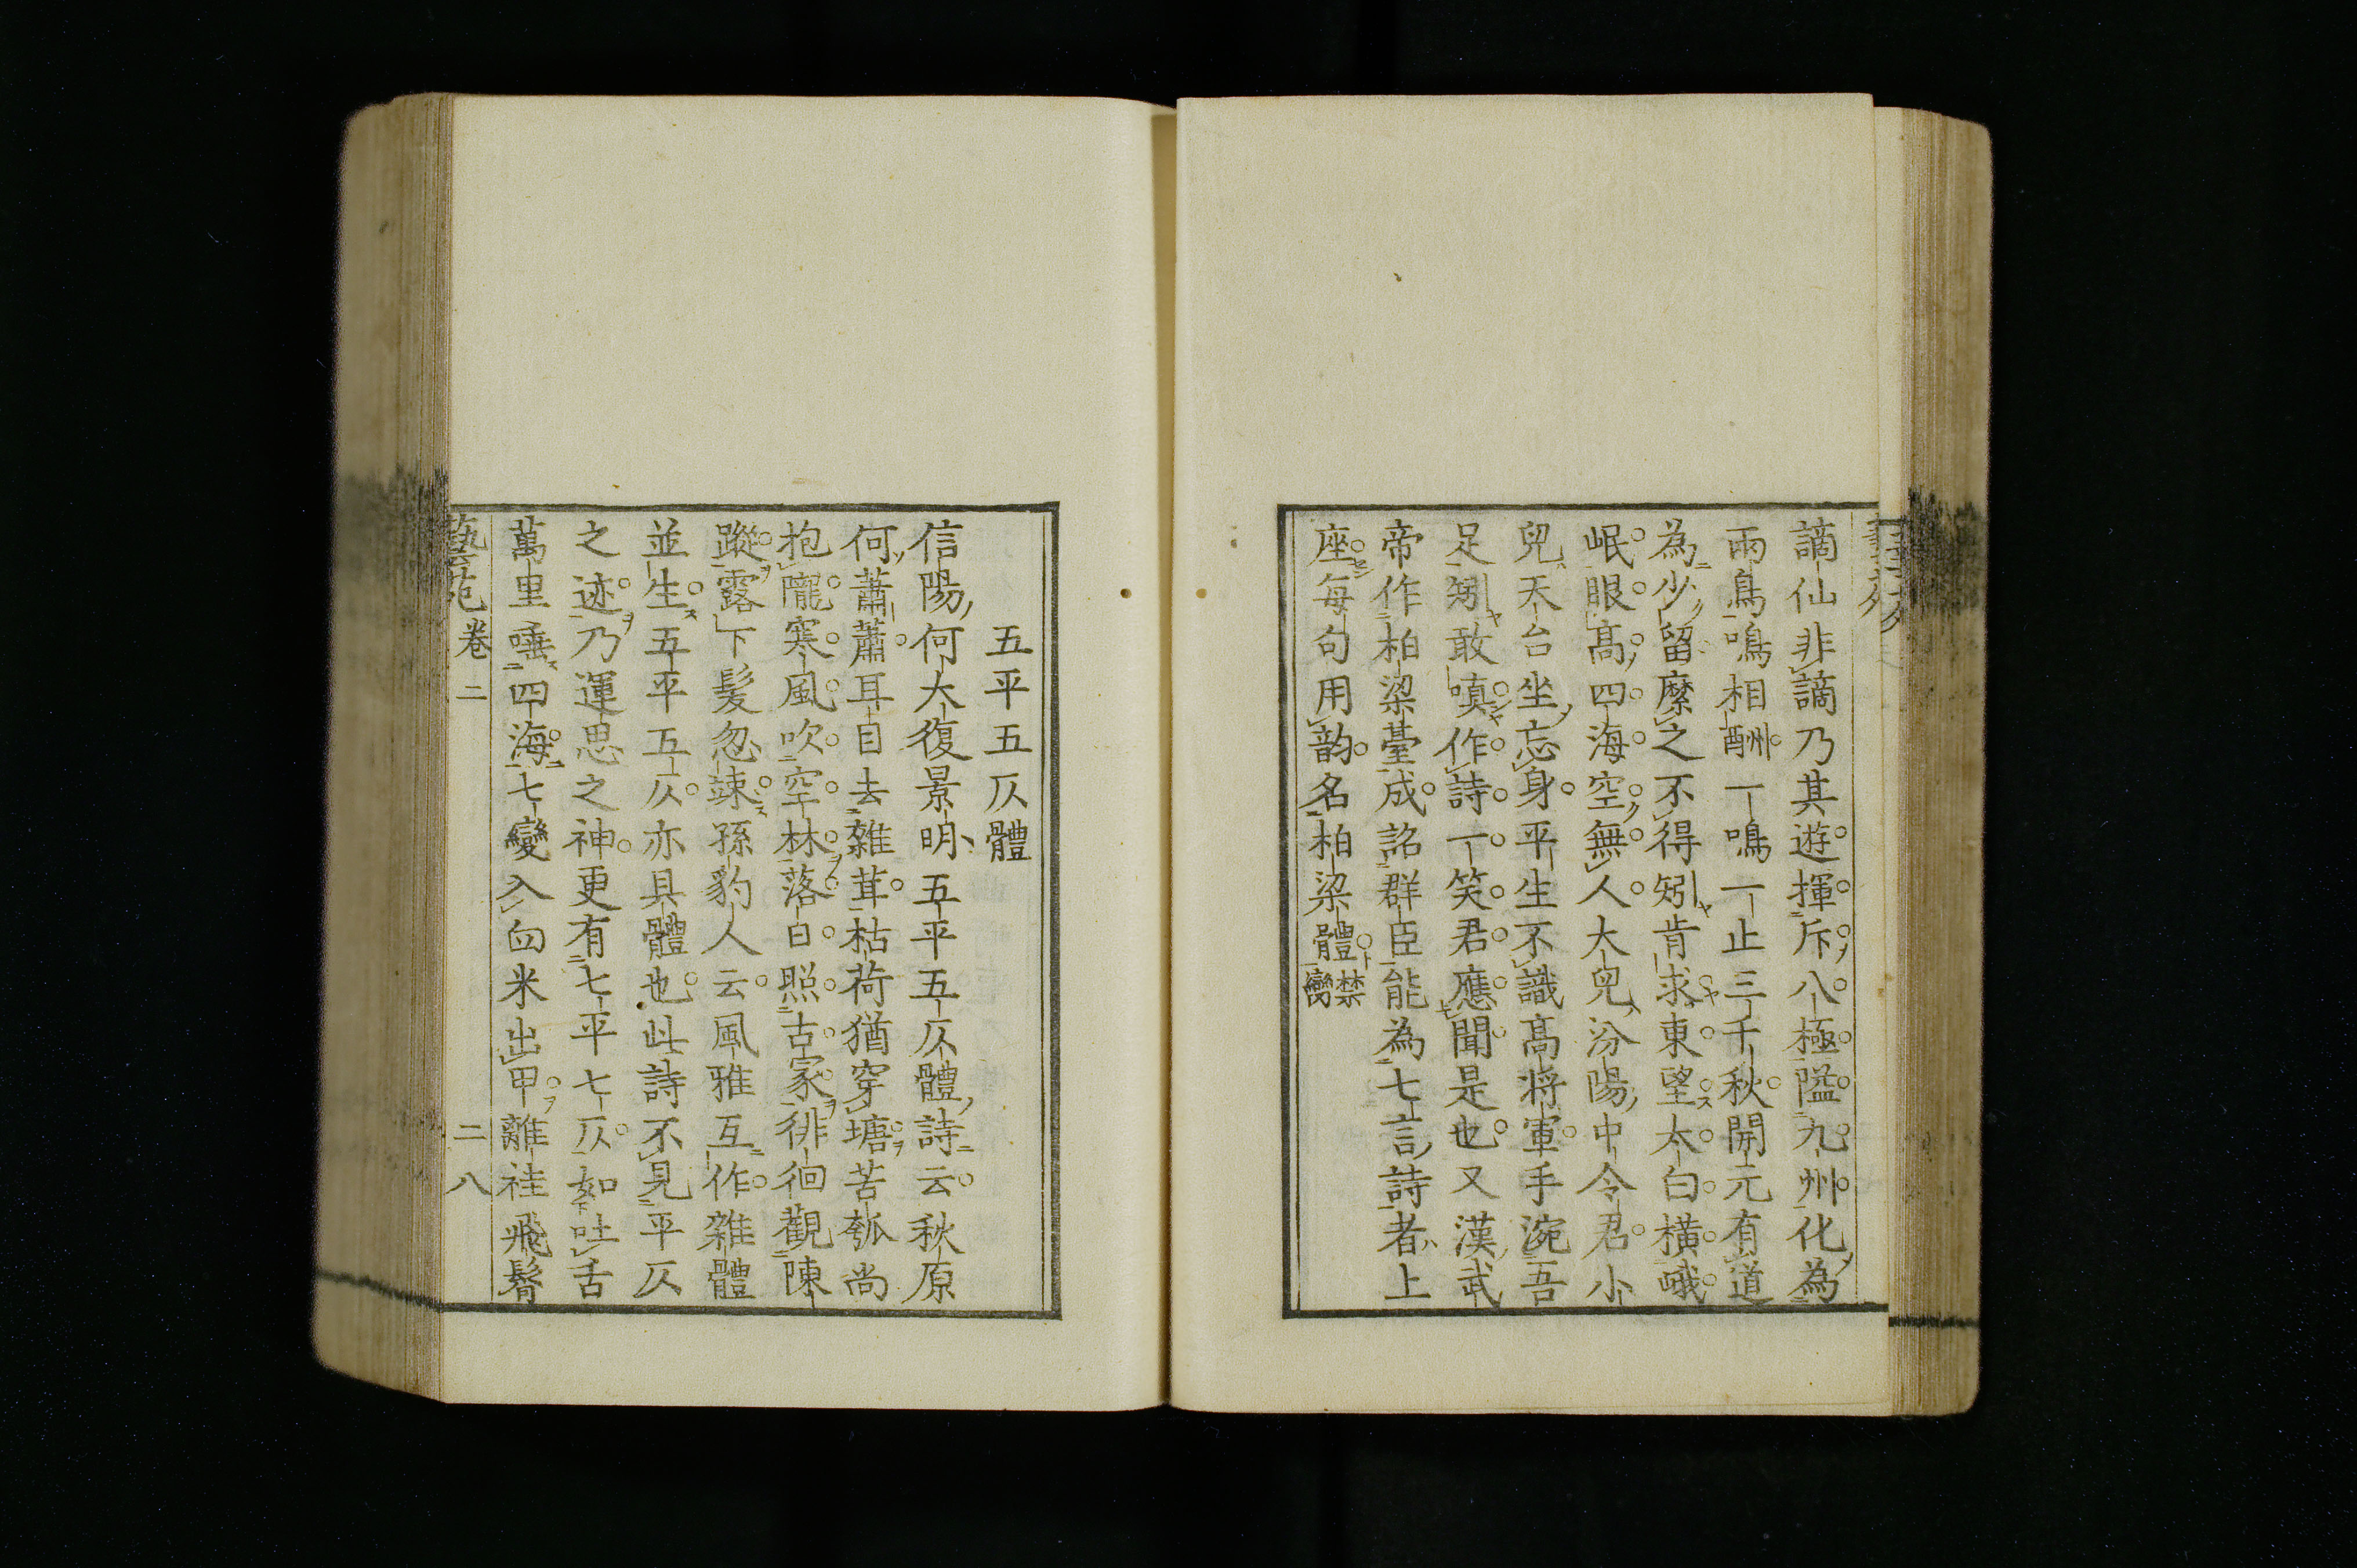 謫仙非謫乃其遊揮斥八極隘九州化為
兩鳥鳴相酬一鳴一止三千秋開元有道
為少留縻之不得矧肯求東望太白橫峨
岷眼高四海空無人大兒汾陽中令君小
兒天台坐忘身平生不識高將軍手涴吾
足矧敢嗔作詩一笑君應聞是也又漢武
帝作柏梁臺成詔群臣能為七言詩者上
座每句用韵名柏梁體禁臠
五平五仄體
信陽何大復景明五平五仄體詩云秋原
何蕭蕭耳目去雜茸枯荷猶穿塘苦瓠尚
抱隴寒風吹空林落日照古冢徘徊觀陳
蹤露下髮忽竦孫豹人云風雅互作雜體
並生五平五仄亦具體也此詩不見平仄
之迹乃運思之神更有七平七仄如吐舌
萬里唾四海七變入臼米出甲離袿飛髾
藝苑 卷二 二八